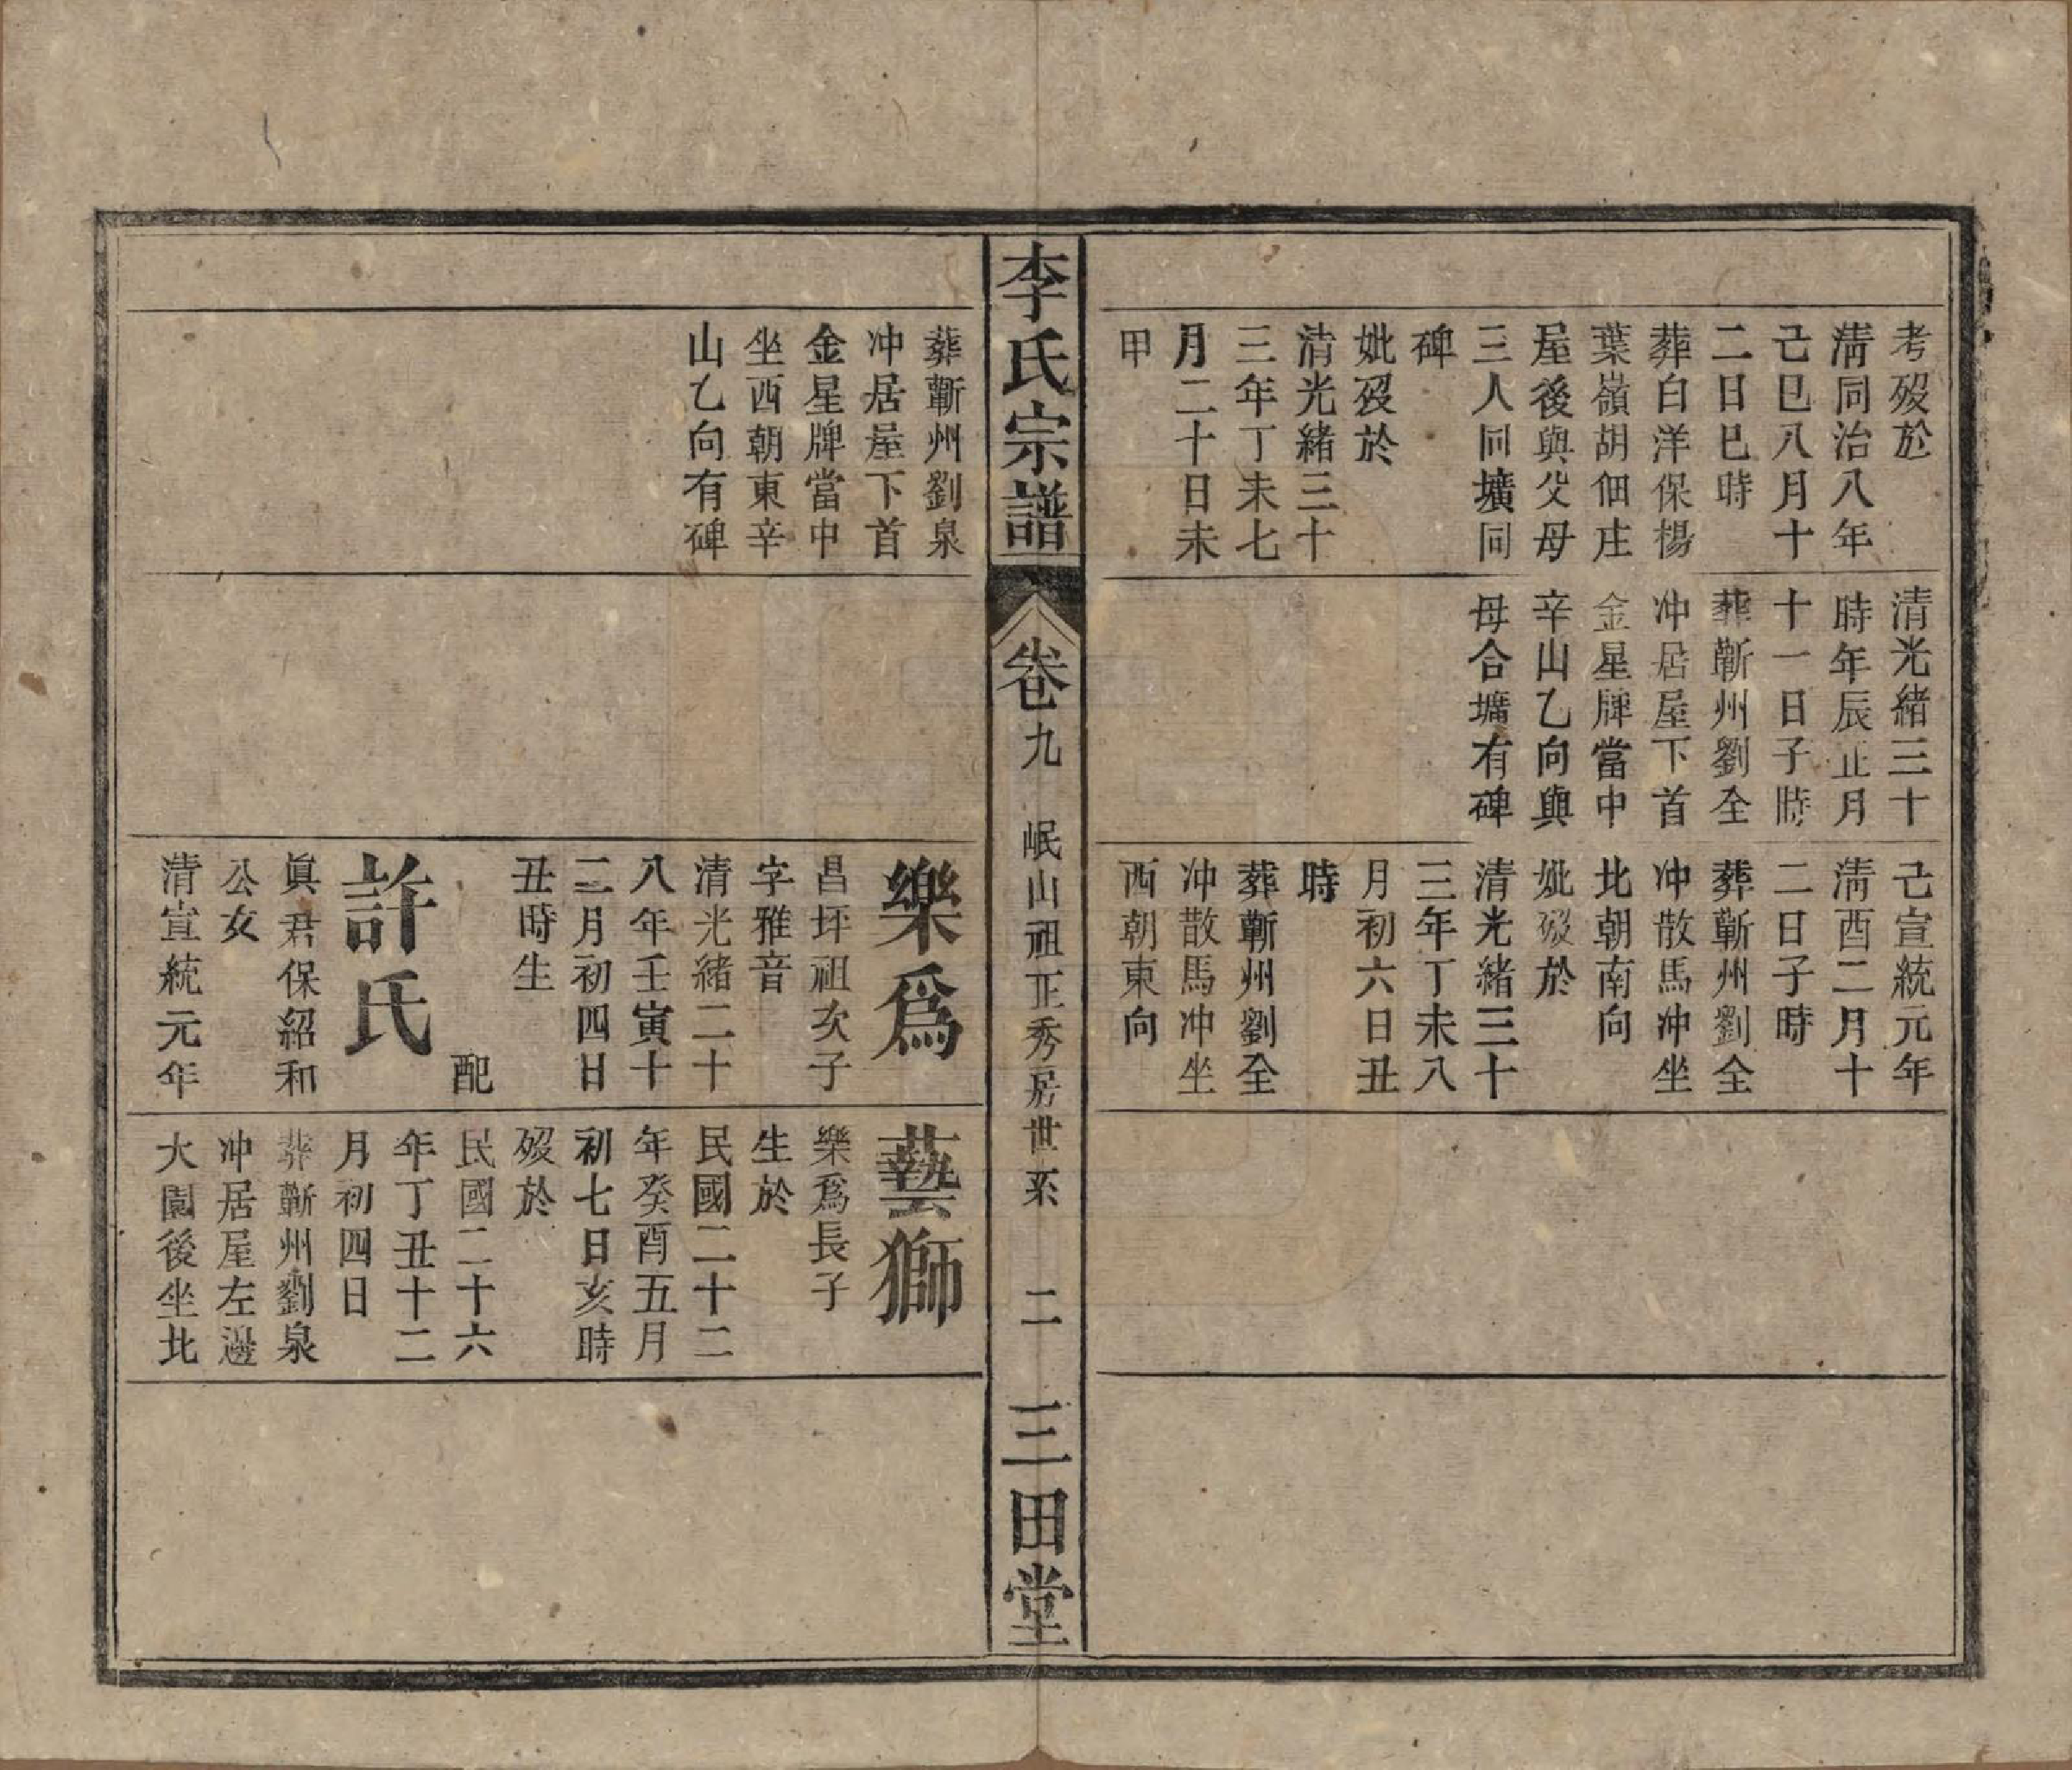 考歿於
淸同治八年
己巳八月十
二日巳時
葬白洋保楊
葉嶺胡佃庄
屋後與父母
三人同壙同
碑
妣歿於
淸光緒三十
三年丁未七
月二十日未
甲
清光緒三十
時年辰正月
十一日子時
葬蘄州劉全
冲居屋下首
金星牌當中
辛山乙向與
母合壙有碑
己宣統元年
淸酉二月十
二日子時
葬蘄州劉全
冲散馬冲坐
北朝南向
妣歿於
清光緒三十
三年丁未八
月初六日丑
時
葬蘄州劉全
冲散馬冲坐
西朝東向
李氏宗譜
卷九
岷山祖正秀居世系
二
三田堂
葬蘄州劉泉
冲居屋下首
金星牌當中
坐西朝東辛
山乙向有碑
樂爲
昌坪祖次子
字雅音
清光緒二十
八年壬寅十
二月初四日
丑時生
配
許氏
眞君保紹和
公女
清宣統元年
藝獅
樂爲長子
生於
民國二十二
年癸酉五月
初七日亥時
歿於
民國二十六
年丁丑十二
月初四日
葬蘄州劉泉
冲居屋左邊
大園後坐北